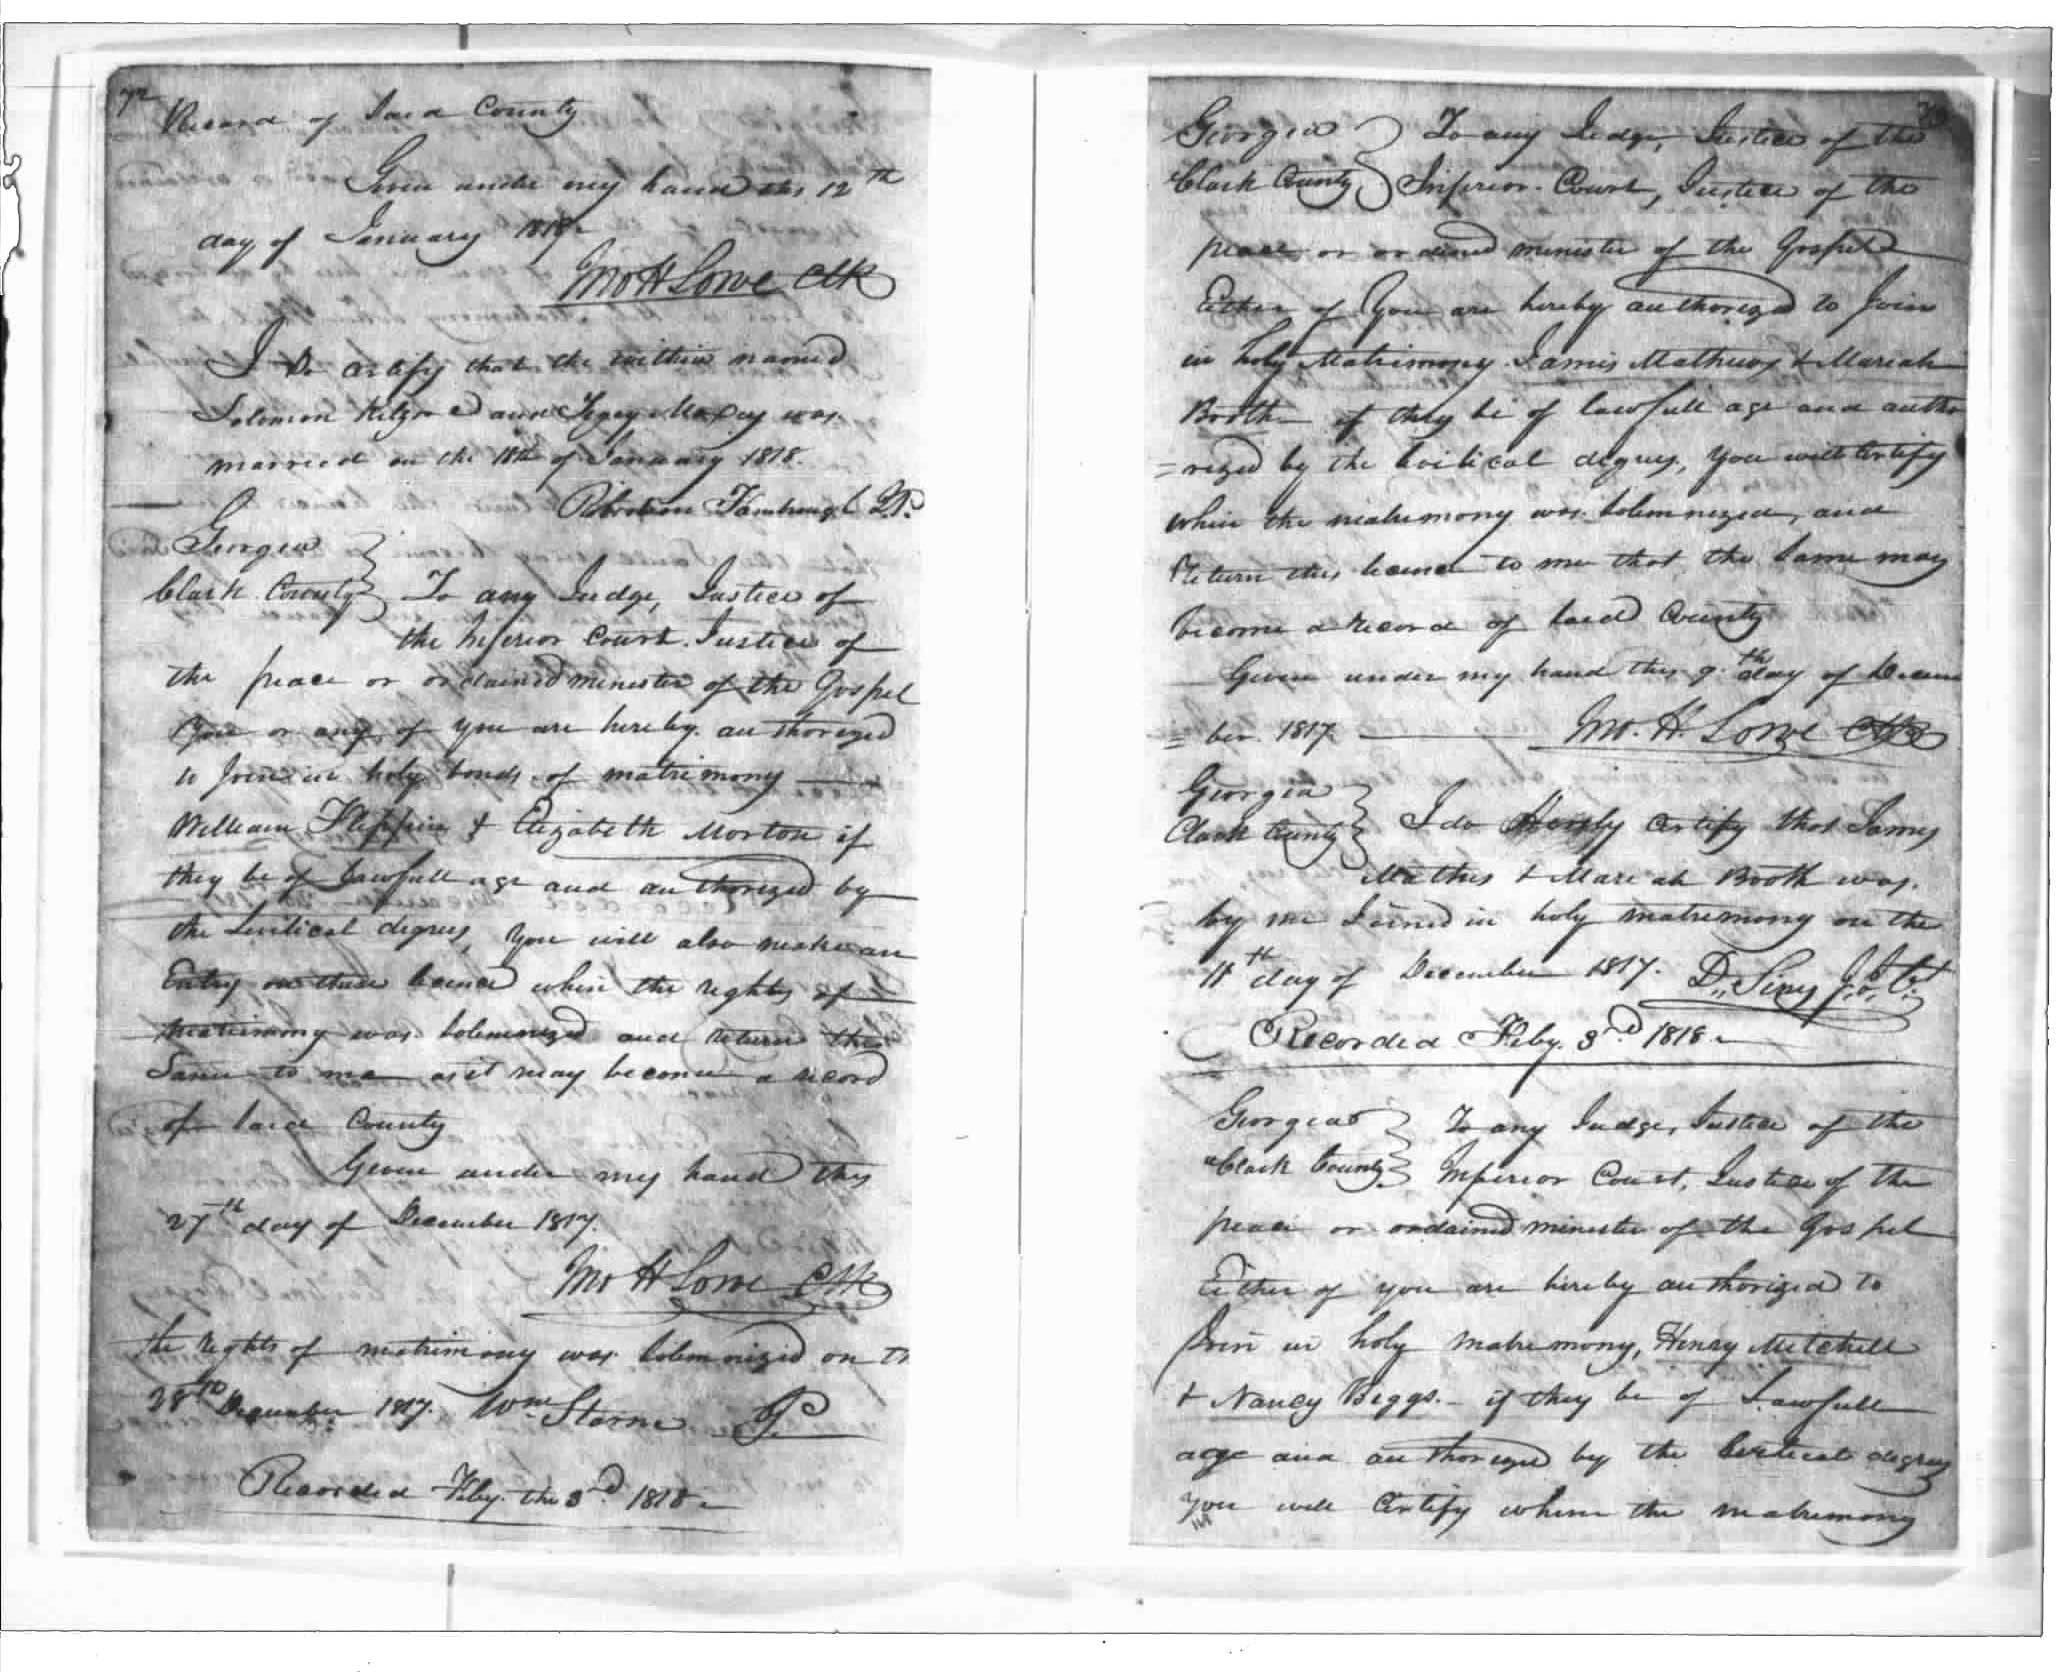 72
Record of Said County
Given under my hand this 12th
day of January 1818
Jno H Lowe Clk
I Do certify that the within named
Solomon Kilgore and Maxey was
married on the 18th of January 1818.
Robertson J.P.
Georgia
Clark County To any Judge, Justice of
the Inferior Court. Justice of
the peace or ordained minister of the Gospel
You or any of you are hereby authorized
to Join in holy bonds of matrimony
William Flippin & Elizabeth Morton if
they be of Lawfull age and authorized by
the Levitical degrees, You will also make an
Entry on these licence when the rights of
matrimony was Solemnized and return the
Same to me as it may become a record
of Said County
Given under my hand this
27th day of December 1817.
Jno H Lowe Clk
the rights of matrimony was Solemnized on th
28th December 1817. Wm Storne JP
Recorded Feby. the 3rd 1818
Georgia To any Judge, Justice of the
Clark County Inferior Court, Justice of the
peace or ordained minister of the Gospel
Either of You are hereby authorized to Join
in holy Matrimony James Mathews & Mariah
Booth if they be of lawfull age and autho
=rized by the Levitical degrees, You will Certify
when the matrimony was Solemnized, and
Return this licence to me that the Same may
become a record of Said County
Given under my hand this 9th day of Decem
=ber 1817 Jno. H. Lowe Clk
Georgia
Clark County I do Hereby Certify that James
Mathis & Mariah Booth was
by me Joined in holy matrimony on the
11th day of December 1817. D,,
Recorded Feby. 3rd 1818
Georgia To any Judge, Justice of the
Clark County Inferior Court, Justice of the
peace or ordained minister of the Gospel
Either of you are hereby authorized to
Join in holy matrimony, Henry Mitchell
& Nancy Biggs. if they be of Lawfull
age and authorized by the Levitical degrees
You will Certify when the matrimony